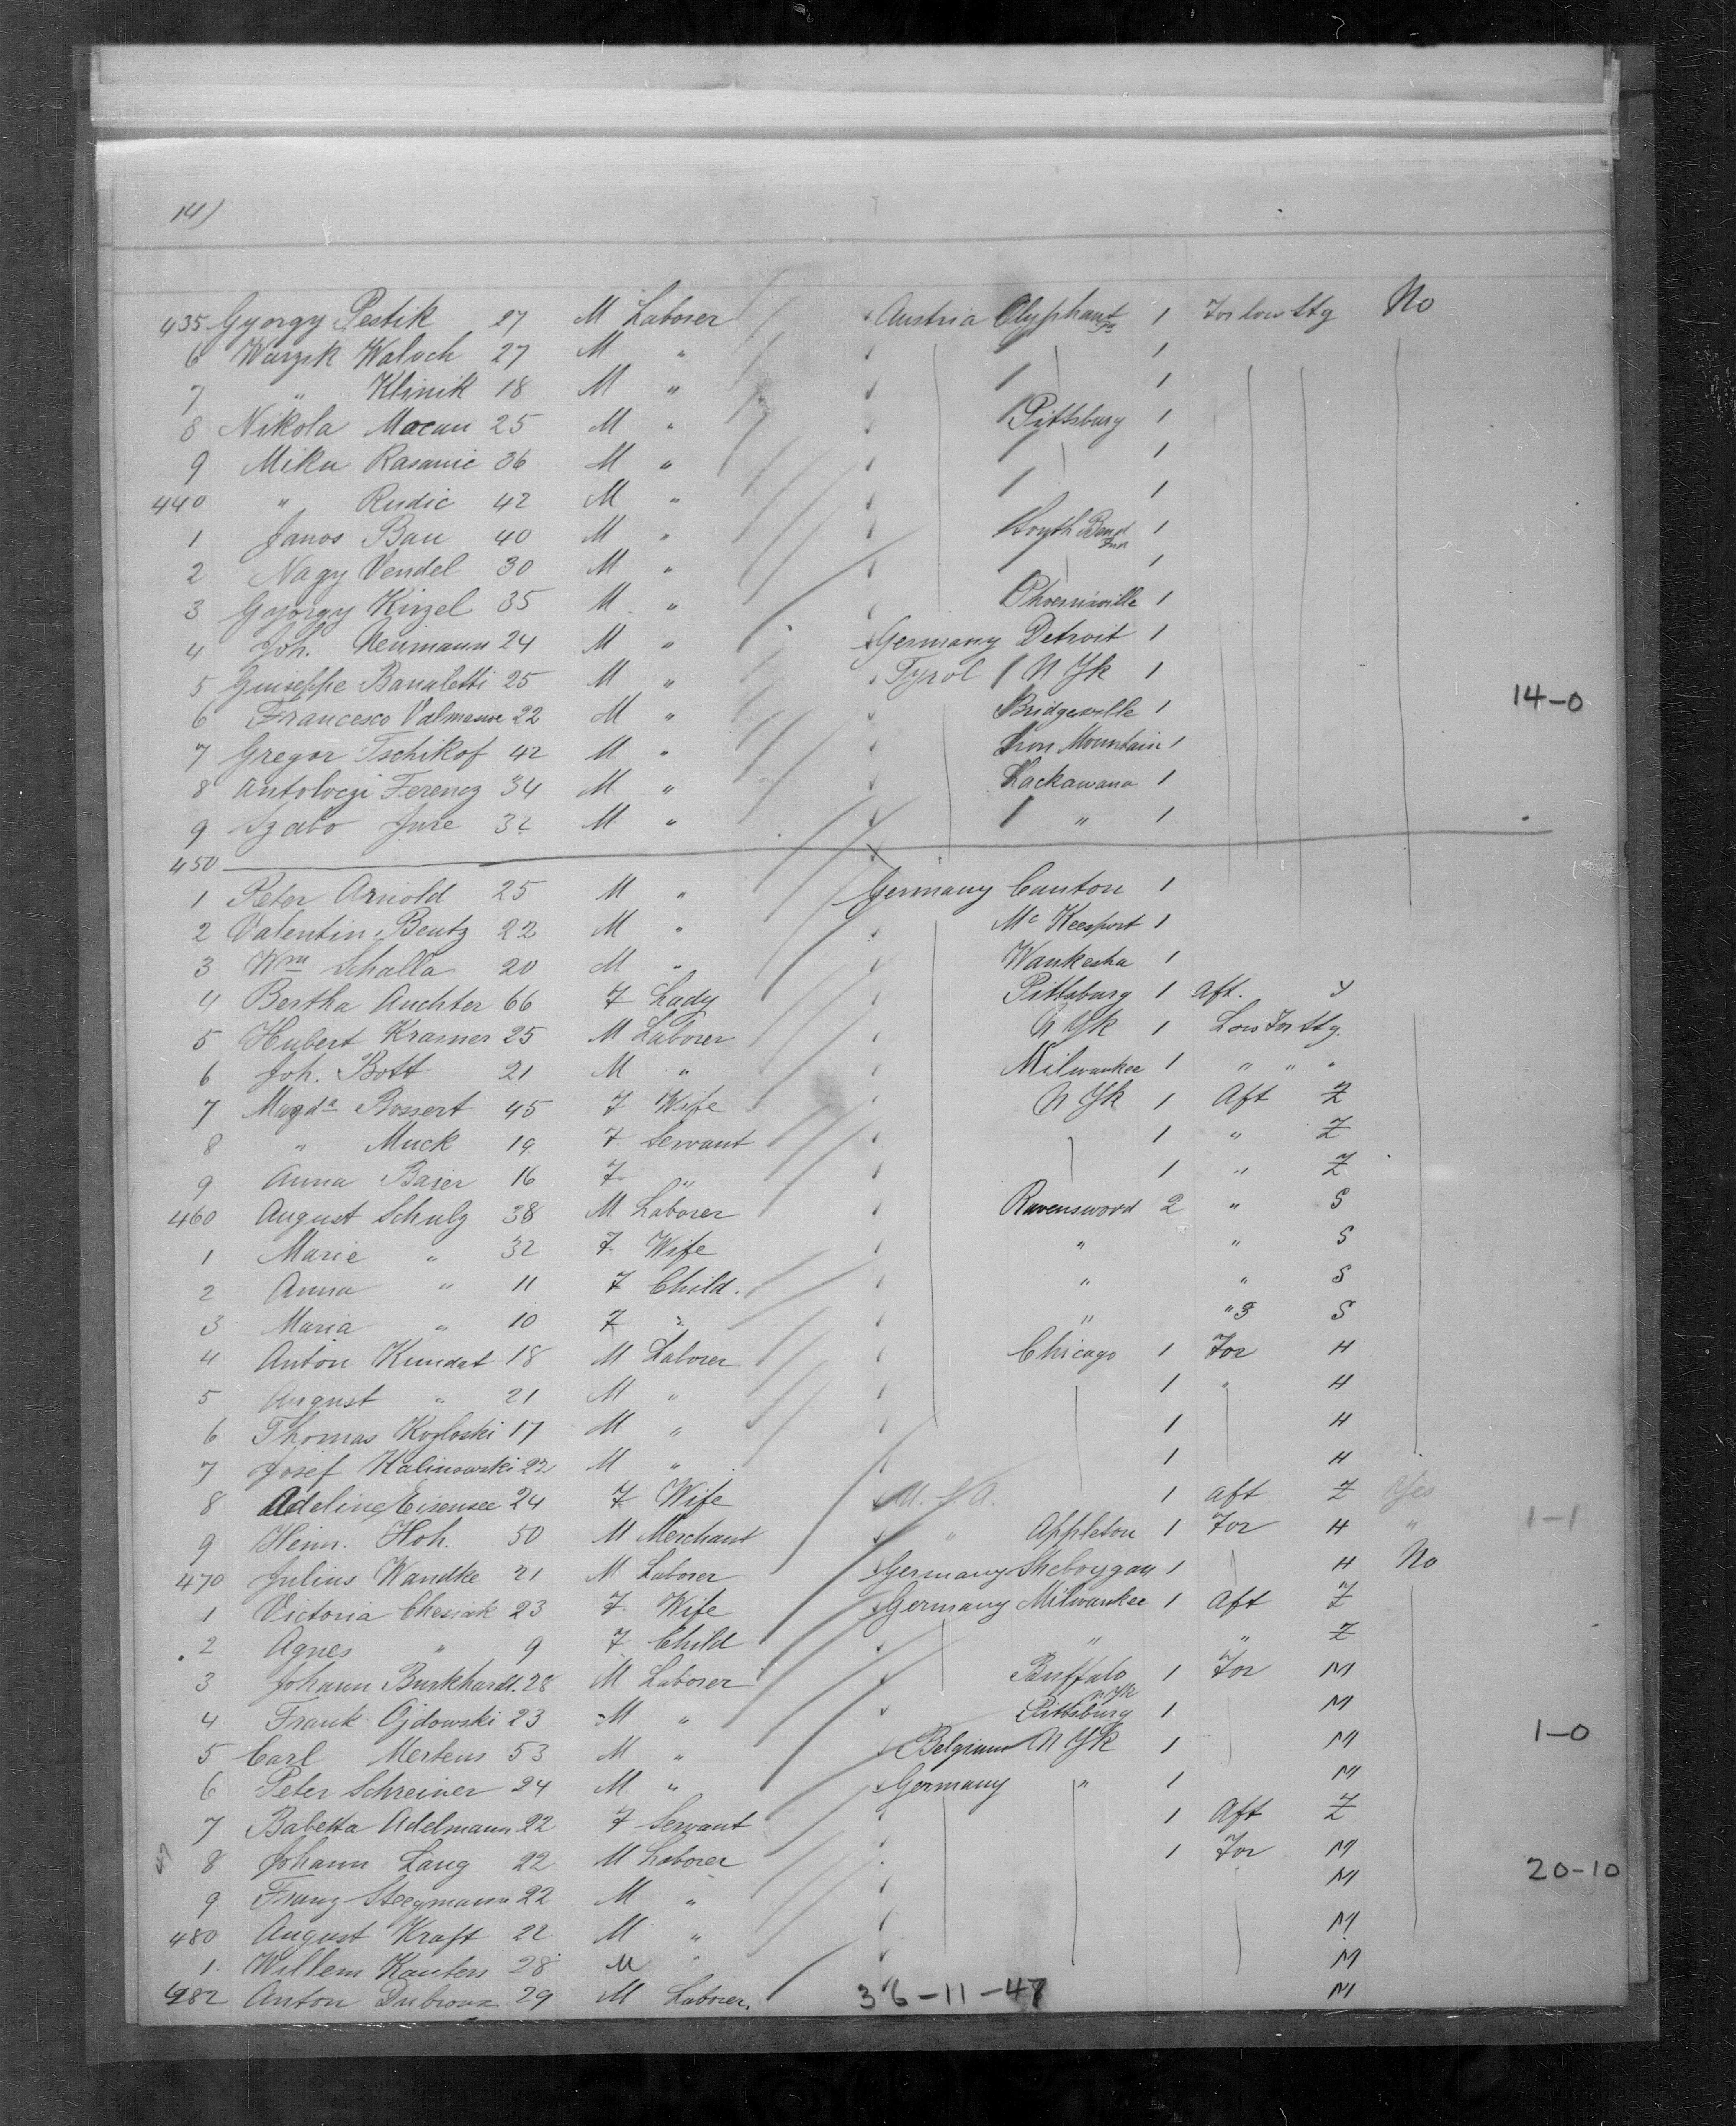 14)
435 Gyorgy Pestik 27 M Laborer Austria Olyphant Pa 1 For low Stg No
6 Wurzsk Waloch 27 M " 1
7 " Klinik 18 M " 1
8 Nikola Macan 25 M " Pittsburg 1
9 Miku Rasanic 36 M " 1
440 " Rudic 42 M " 1
1 Janos Bau 40 M " South Bend Ind 1
2 Nagy Vendel 30 M " 1
3 Gyorgy Kinzel 35 M " Phoenixville 1
4 Joh. Neumann 24 M " Germany Detroit 1
5 Guiseppe Banaletti 25 M " Tyrol N Yk 1
6 Francesco Valmasoe 22 M " Bridgeville 1
14-0
7 Gregor Tschikof 42 M " Iron Mountain 1
8 Antoloczi Ferencz 34 M " Lackawana 1
9 Szabo Jure 32 M " " 1
450
1 Peter Arnold 25 M " Germany Canton 1
2 Valentin Bentz 22 M " Mc Keesport 1
3 Wm Schalla 20 M " Waukesha 1
4 Bertha Auchter 66 F Lady Pittsburg 1 Aft. y
5 Hubert Kramer 25 M Laborer N Yk 1 Low For Stg.
6 Joh. Bott 21 M " Milwaukee 1 " " "
7 Magda Bossert 45 F Wife N Yk 1 Aft Z
8 " Muck 19 F Servant 1 " Z
9 Anna Baier 16 F " 1 " Z
460 August Schulz 38 M Laborer Ravenswood 2 " S
1 Marie " 32 F. Wife " " S
2 Anna " 11 F Child. " " S
3 Maria " 10 F " " "3 S
4 Anton Kundat 18 M Laborer Chicago 1 For H
5 August " 21 M " 1 " H
6 Thomas Kozloski 17 M " 1 H
7 Josef Kalinowski 22 M " 1 H
8 Adeline Eisensee 24 F Wife U. S. A. 1 Aft Z Yes
9 Heinr. Hoh. 50 M Merchant " Appleton 1 For H "
1-1
470 Julius Wandke 21 M Laborer Germany Sheboygan 1 H No
1 Victoria Chesiak 23 F. Wife Germany Milwaukee 1 Aft Z
2 Agnes " 9 F Child " " Z
3 Johann Burkhardt. 28 M Laborer Buffalo N Yk 1 For M
4 Frank Ojdowski 23 M " Pittsburg 1 M
5 Carl Mertens 53 M " Belgium N Yk 1 M
1-0
6 Peter Schreiner 24 M " Germany " 1 M
7 Babetta Adelmann 22 F Servant 1 Aft Z
8 Johann Lang 22 M Laborer 1 For M
9 Franz Steegmann 22 M " M
20-10
480 August Kraft 22 M " M
1. Willem Kauters 28 M " M
482 Anton Dubrowa 29 M Laborer. M
36-11-47